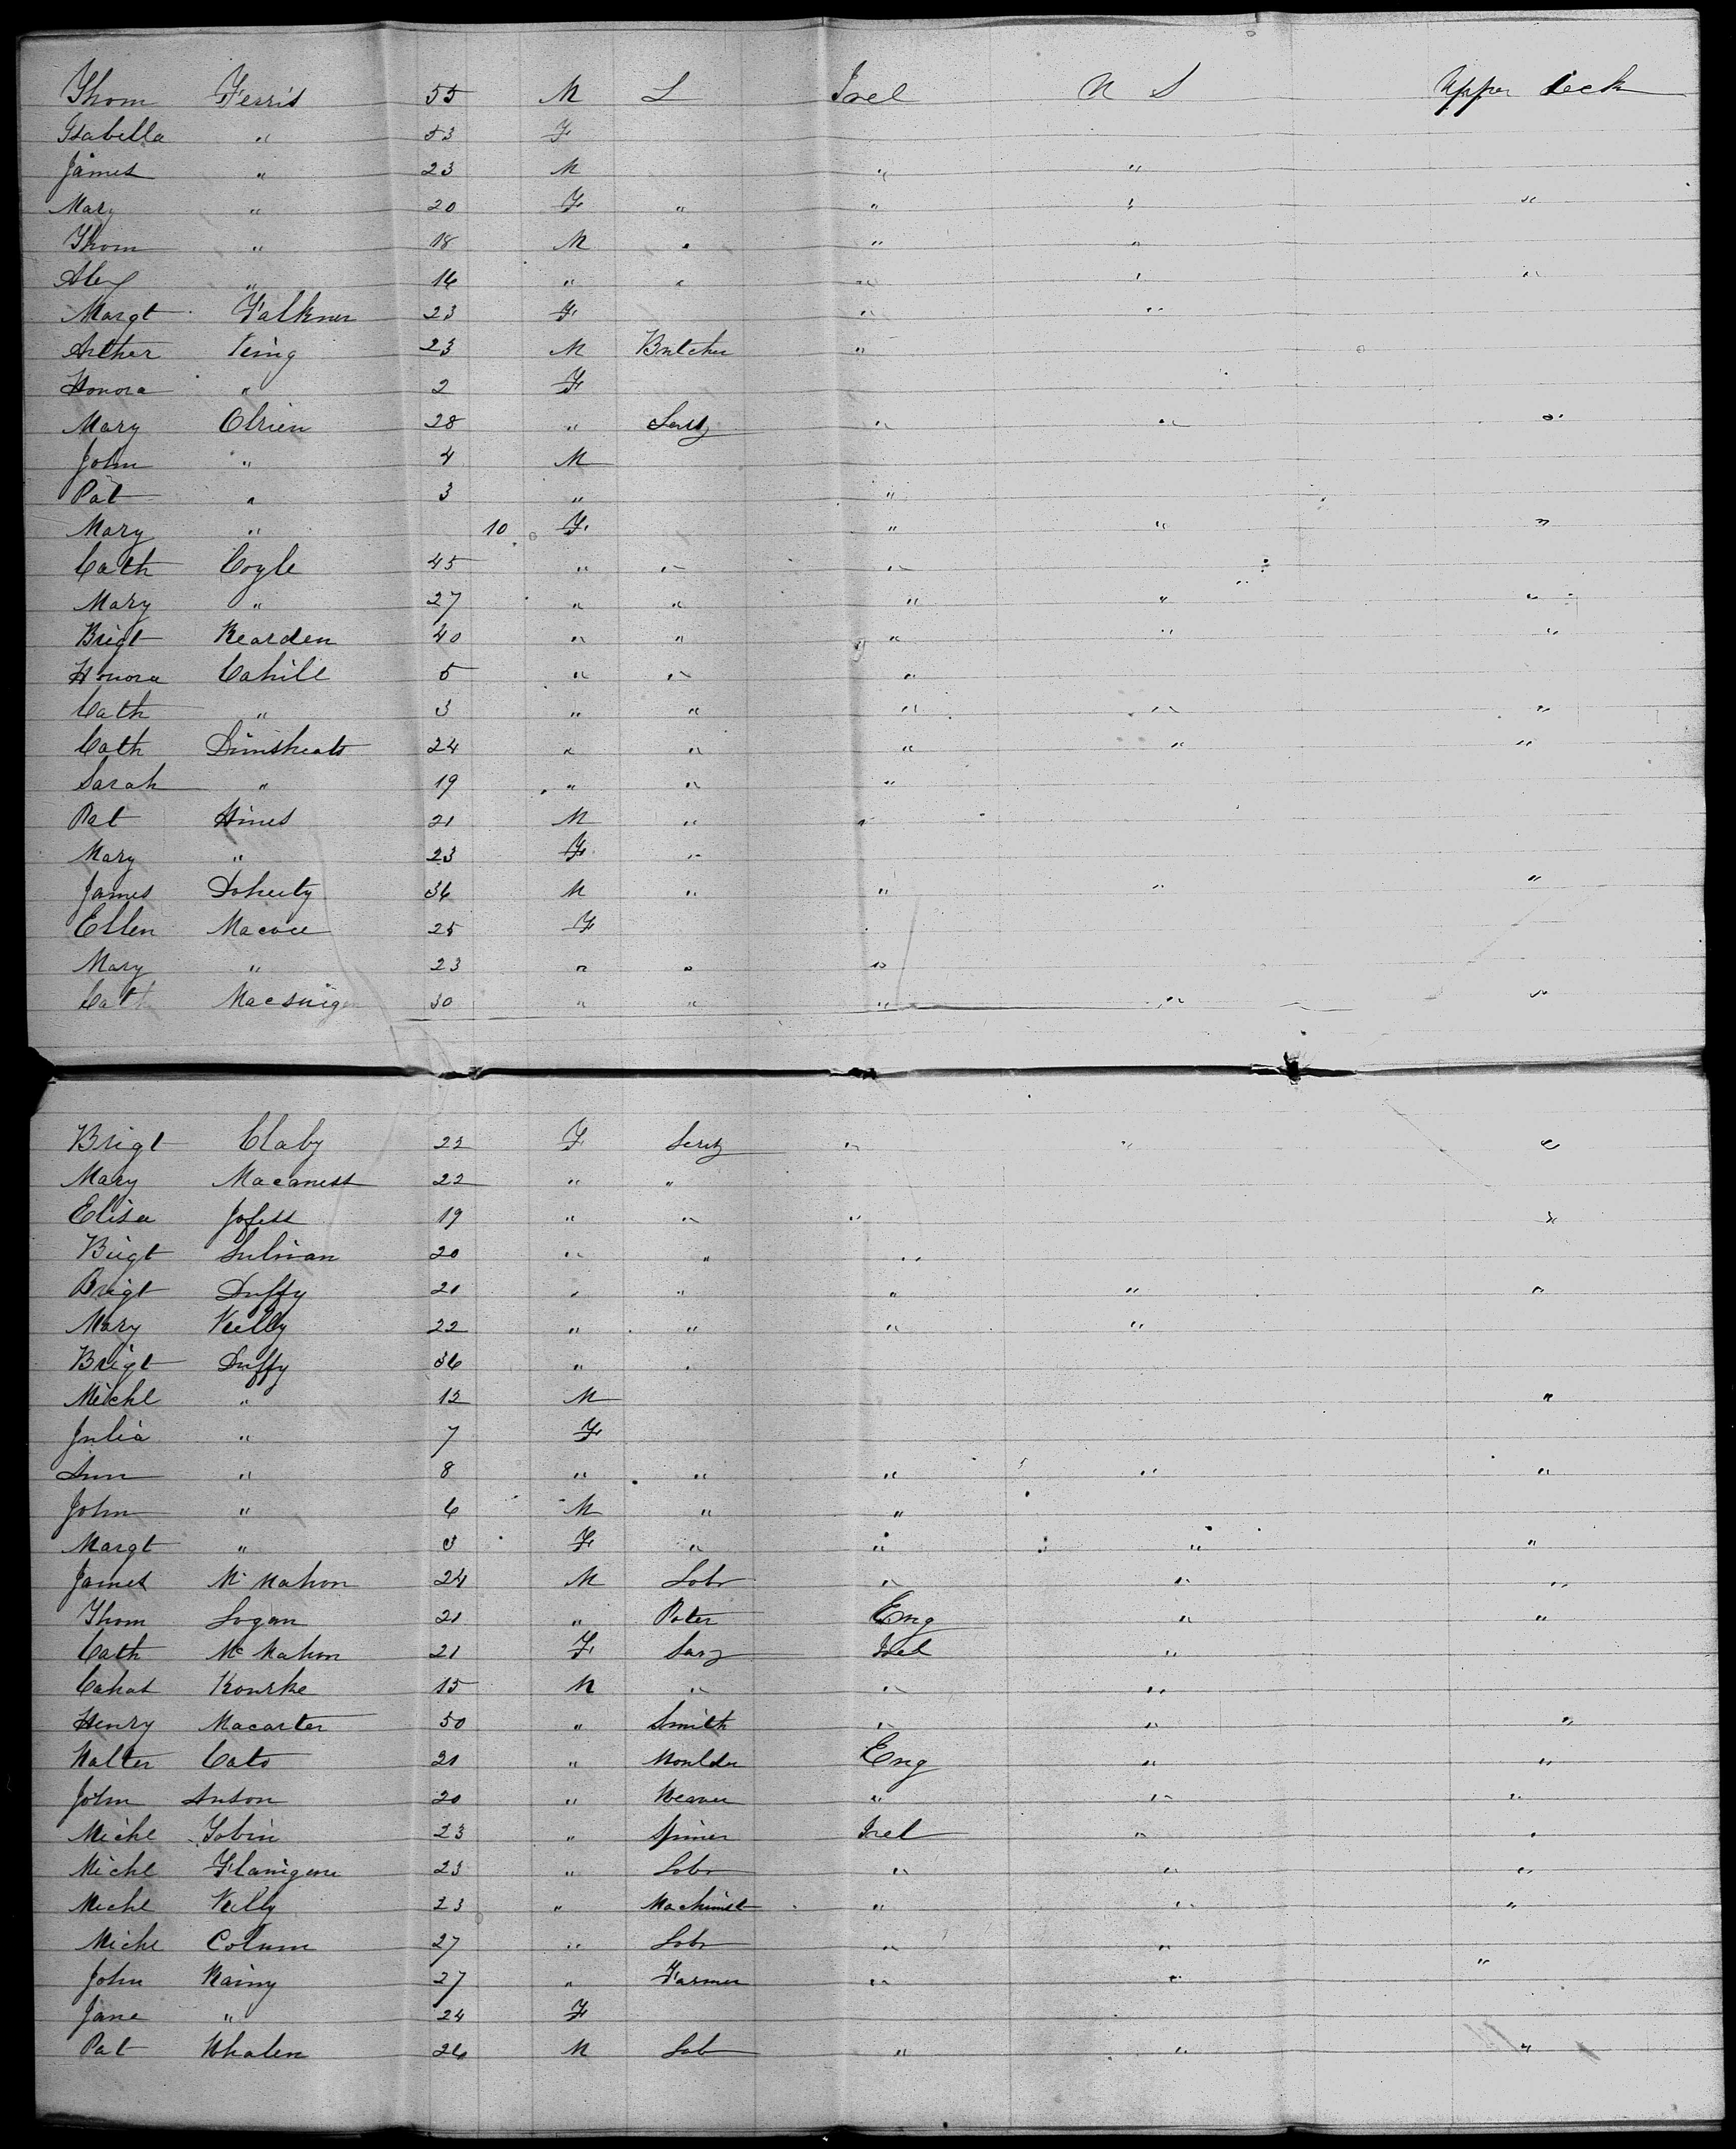 Thom Ferris 55 M L Irel U S Upper Deck
Isabella " 53 F
James " 23 M " "
Mary " 20 F " " " "
Thom " 18 M " " "
Alex " 16 " " " " "
Margt Falkner 23 F " "
Arther King 23 M Butcher "
Honora " 2 F
Mary Obrien 28 " " " "
John " 4 M
Pat " 3 " "
Mary " 10 F " " "
Cath Coyle 45 " " " "
Mary " 27 " " " " "
Brigt Rearden 40 " " " " "
Honora Cahill 5 " " "
Cath " 3 " " " " "
Cath 24 " " " " "
Sarah " 19 " " "
Pat Hines 21 M " "
Mary " 23 F "
James Doherty 36 M " " " "
Ellen 25 F
Mary " 23 " " "
Cath 30 " " " " "
Brigt Claby 22 F " " "
Mary Macaness 22 " "
Elisa 19 " " " "
Brigt Sulivan 20 " " "
Brigt Duffy 21 " " " " "
Mary Kelly 22 " " " "
Brigt Duffy 36 " "
Michl " 12 M "
Julia " 7 F
Ann " 8 " " " " "
John " 6 M " "
Margt " 3 F " " " "
James McMahon 24 M Labr " " "
Thom Logan 21 " Poter Eng " "
Cath McMahon 21 F Irel "
Rourke 15 M " " "
Henry Macarter 50 " Smith " " "
Walter Cato 21 " Moulder Eng " "
John Anson 20 " Weaver " " "
Michl Tobin 23 " Spiner Irel " "
Michl Flanigan 23 " Labr " " "
Michl Kelly 23 " Machinist " " "
Michl Colum 27 " Labr " " "
John Rainy 27 " Farmer " " "
Jane " 24 F
Pat Whalen 26 M Lab " " "